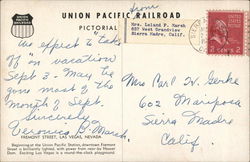 UNION PACIFIC RAILROAD
from
PICTORIAL
Mrs. Leland P. Marsh
637 West Grandview
Sierra Madre, Calif.
We expect to "take
off" on vacation
Sept 3 - May be
gone most of the
month of Sept.
Sincerely,
Veronica B. Marsh
Mrs Carl W. Gerke
602 Mariposa
Sierra Madre
Calif.
FREMONT STREET, LAS VEGAS, NEVADA
Beginning at the Union Pacific Station, downtown Fremont
Street is brilliantly lighted, with power from near-by Hoover
Dam. Exciting Las Vegas is a round-the-clock playground.